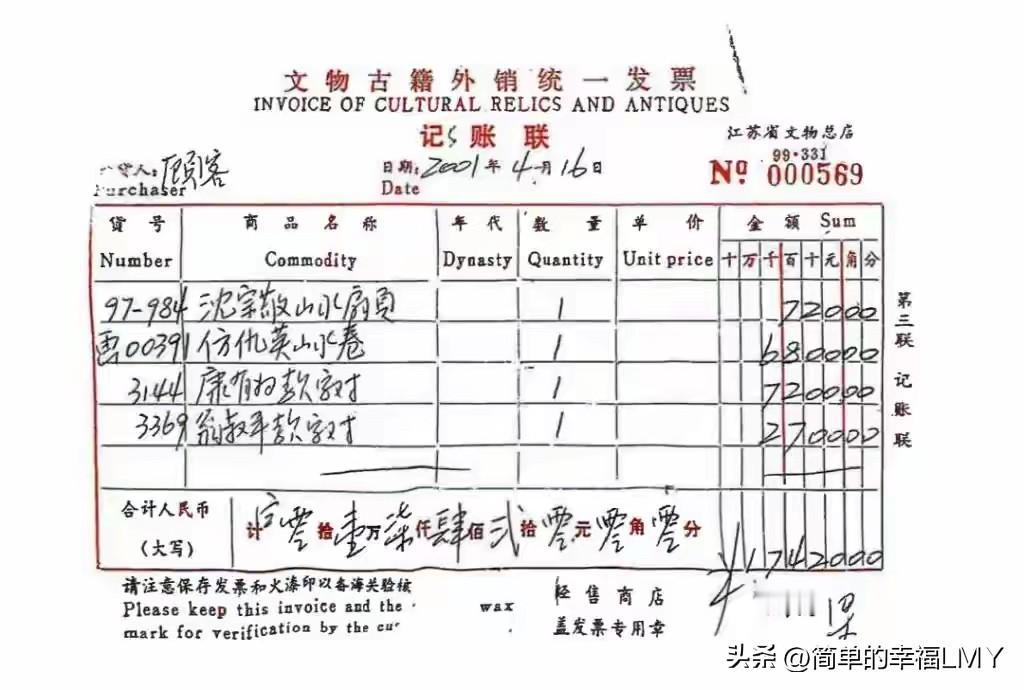 文物古籍外销统一发票
INVOICE OF CULTURAL RELICS AND ANTIQUES
记账联
江苏省文物总店
货人:顾客
Purchaser
日期:2001年4月16日
Date
99·331
Nº 000569
货号 商品名称 年代 数量 单价 金额 Sum
Number Commodity Dynasty Quantity Unit price 十万千百十元角分
97-984 沈宗敬山水扇頁 1 72000
00391 仿仇英山水卷 1 680000
3144 康有为款字对 1 720000
3369 翁叔平款字对 1 270000
合计人民币
(大写)
计 零拾壹万柒仟肆佰贰拾零元零角零分 ¥1742000
第三联 记账联
请注意保存发票和火漆印以备海关验核
Please keep this invoice and the wax
mark for verification by the cu
经售商店
盖发票专用章
头条 @简单的幸福LMY